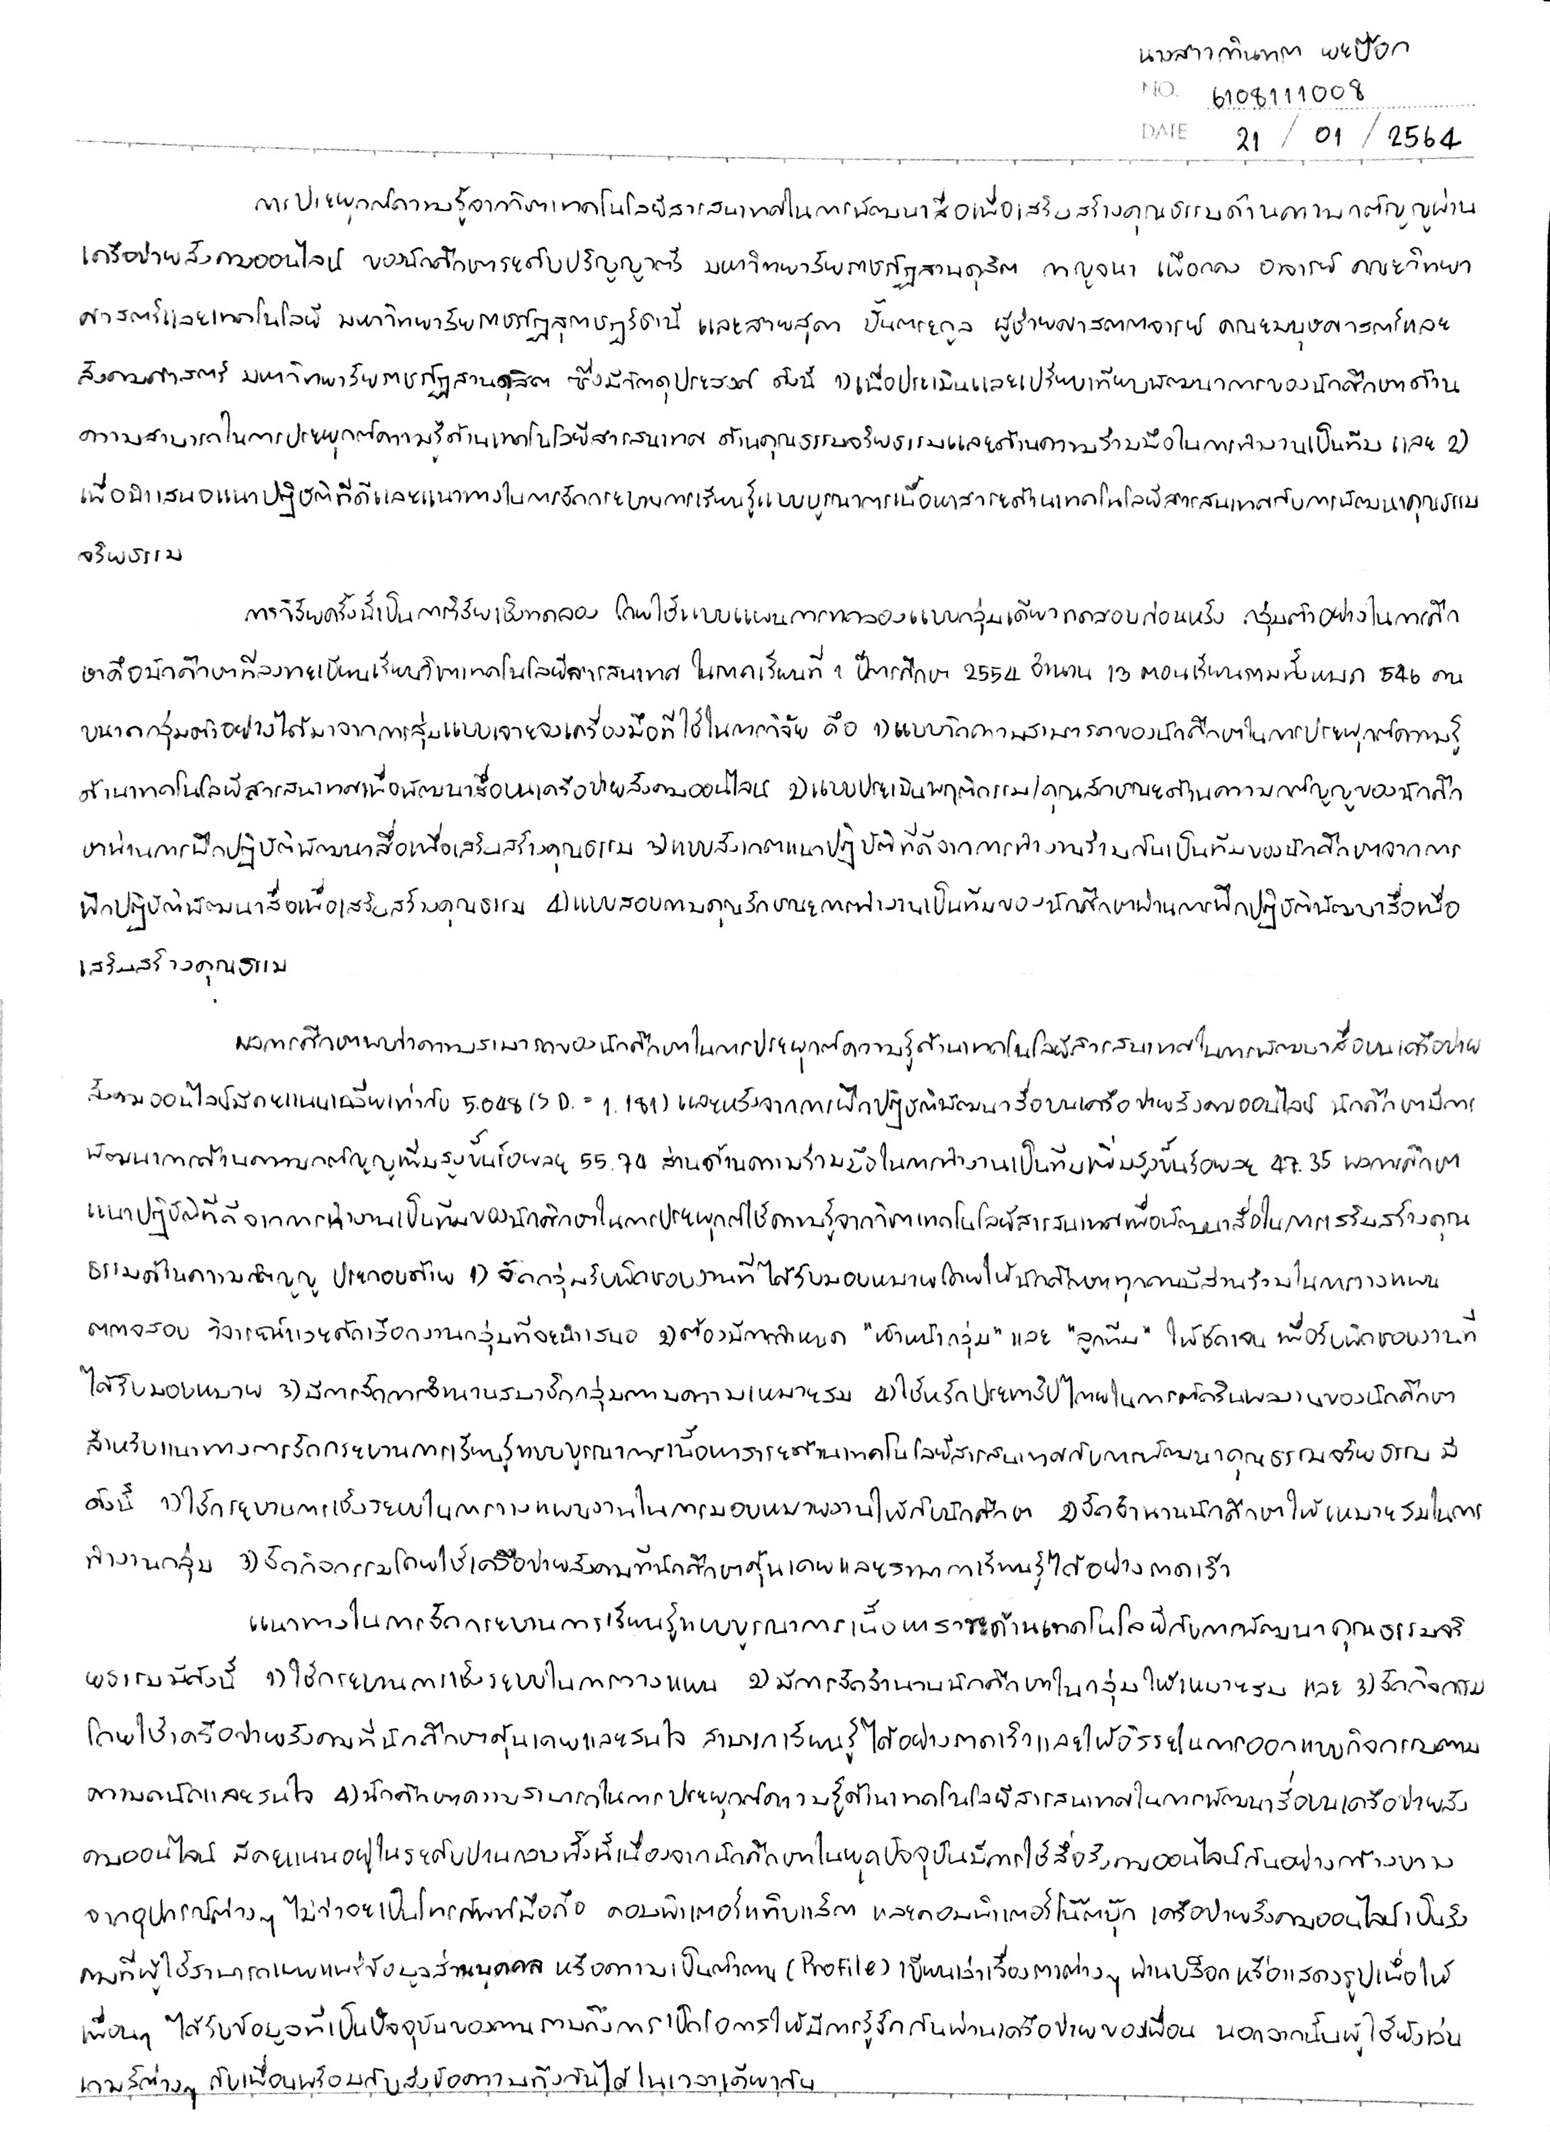 นางสาวทินภา พยป๊อก
NO. 6108111008
DATE 21 / 01 / 2564
การประยุกต์ความรู้จากวิชาเทคโนโลยีสารสนเทศในการพัฒนาสื่อเพื่อเสริมสร้างคุณธรรมด้านความกตัญญูผ่าน
เครือข่ายสังคมออนไลน์ ของนักศึกษาระดับปริญญาตรี มหาวิทยาลัยราชภัฏสวนดุสิต กาญจนา เผือกคง อาจารย์ คณะวิทยา
ศาสตร์และเทคโนโลยี มหาวิทยาลัยราชภัฏสุราษฎร์ธานี และสายสุดา ปั้นตระกูล ผู้ช่วยศาสตราจารย์ คณะมนุษศาสตร์และ
สังคมศาสตร์ มหาวิทยาลัยราชภัฏสวนดุสิต ซึ่งมีวัตถุประสงค์ ดังนี้ 1) เพื่อประเมินและเปรียบเทียบพัฒนาการของนักศึกษาด้าน
ความสามารถในการประยุกต์ความรู้ด้านเทคโนโลยีสารสนเทศ ด้านคุณธรรมจริยธรรมและด้านความร่วมมือในการทำงานเป็นทีม และ 2)
เพื่อนำเสนอแนวปฏิบัติที่ดีและแนวทางในการจัดกระบวนการเรียนรู้แบบบูรณาการเนื้อหาสาระด้านเทคโนโลยีสารสนเทศกับการพัฒนาคุณธรรม
จริยธรรม
การวิจัยครั้งนี้เป็นการวิจัยเชิงทดลอง โดยใช้แบบแผนการทดลองแบบกลุ่มเดียวทดสอบก่อนหลัง กลุ่มตัวอย่างในการศึก
ษาคือนักศึกษาที่ลงทะเบียนเรียนวิชาเทคโนโลยีสารสนเทศ ในภาคเรียนที่ 1 ปีการศึกษา 2554 จำนวน 13 ตอนเรียนรวมทั้งหมด 546 คน
ขนาดกลุ่มตัวอย่างได้มาจากการสุ่มแบบเจาะจงเครื่องมือที่ใช้ในการวิจัย คือ 1) แบบวัดความสามารถของนักศึกษาในการประยุกต์ความรู้
ด้านเทคโนโลยีสารสนเทศเพื่อพัฒนาสื่อบนเครือข่ายสังคมออนไลน์ 2) แบบประเมินพฤติกรรม/คุณลักษณะด้านความกตัญญูของนักศึก
ษาผ่านการฝึกปฏิบัติพัฒนาสื่อเพื่อเสริมสร้างคุณธรรม 3) แบบสังเกตแนวปฏิบัติที่ดีจากการทำงานร่วมกันเป็นทีมของนักศึกษาจากการ
ฝึกปฏิบัติพัฒนาสื่อเพื่อเสริมสร้างคุณธรรม 4) แบบสอบถามคุณลักษณะการทำงานเป็นทีมของนักศึกษาผ่านการฝึกปฏิบัติพัฒนาสื่อเพื่อ
เสริมสร้างคุณธรรม
ผลการศึกษาพบว่าความสามารถของนักศึกษาในการประยุกต์ความรู้ด้านเทคโนโลยีสารสนเทศในการพัฒนาสื่อบนเครือข่าย
สังคมออนไลน์มีคะแนนเฉลี่ยเท่ากับ 5.048 (S.D. = 1.181) และหลังจากการฝึกปฏิบัติพัฒนาสื่อบนเครือข่ายสังคมออนไลน์ นักศึกษามีการ
พัฒนาการด้านความกตัญญูเพิ่มสูงขึ้นร้อยละ 55.74 ส่วนด้านความร่วมมือในการทำงานเป็นทีมเพิ่มสูงขึ้นร้อยละ 47.35 ผลการศึกษา
แนวปฏิบัติที่ดีจากการทำงานเป็นทีมของนักศึกษาในการประยุกต์ใช้ความรู้จากวิชาเทคโนโลยีสารสนเทศเพื่อพัฒนาสื่อในการเสริมสร้างคุณ
ธรรมด้านความกตัญญู ประกอบด้วย 1) จัดกลุ่มรับผิดชอบงานที่ได้รับมอบหมายโดยให้นักศึกษาทุกคนมีส่วนร่วมในการวางแผน
ตรวจสอบ วิจารณ์และคัดเลือกงานกลุ่มที่จะนำเสนอ 2) ต้องมีการกำหนด "หัวหน้ากลุ่ม" และ "ลูกทีม" ให้ชัดเจน เพื่อรับผิดชอบงานที่
ได้รับมอบหมาย 3) มีการจัดการจำนวนสมาชิกกลุ่มตามความเหมาะสม 4) ใช้หลักประชาธิปไตยในการตัดสินผลงานของนักศึกษา
สำหรับแนวทางการจัดกระบวนการเรียนรู้แบบบูรณาการเนื้อหาสาระด้านเทคโนโลยีสารสนเทศกับการพัฒนาคุณธรรมจริยธรรม มี
ดังนี้ 1) ใช้กระบวนการเชิงระบบในการวางแผนงานในการมอบหมายงานให้กับนักศึกษา 2) จัดจำนวนนักศึกษาให้เหมาะสมในการ
ทำงานกลุ่ม 3) จัดกิจกรรมโดยใช้เครือข่ายสังคมที่นักศึกษาคุ้นเคยและสามารถเรียนรู้ได้อย่างรวดเร็ว
แนวทางในการจัดกระบวนการเรียนรู้แบบบูรณาการเนื้อหาสาระด้านเทคโนโลยีกับการพัฒนาคุณธรรมจริ
ยธรรมมีดังนี้ 1) ใช้กระบวนการเชิงระบบในการวางแผน 2) มีการจัดจำนวนนักศึกษาในกลุ่มให้เหมาะสม และ 3) จัดกิจกรรม
โดยใช้เครือข่ายสังคมที่นักศึกษาคุ้นเคยและสนใจ สามารถเรียนรู้ได้อย่างรวดเร็วและให้อิสระในการออกแบบกิจกรรมตาม
ความถนัดและสนใจ 4) นักศึกษาความสามารถในการประยุกต์ความรู้ด้านเทคโนโลยีสารสนเทศในการพัฒนาสื่อบนเครือข่ายสัง
คมออนไลน์ มีคะแนนอยู่ในระดับปานกลางทั้งนี้เนื่องจากนักศึกษาในยุคปัจจุบันมีการใช้สื่อสังคมออนไลน์กันอย่างกว้างขวาง
จากอุปกรณ์ต่างๆ ไม่ว่าจะเป็นโทรศัพท์มือถือ คอมพิวเตอร์แท็บแล็ต และคอมพิวเตอร์โน๊ตบุ๊ก เครือข่ายสังคมออนไลน์เป็นสัง
คมที่ผู้ใช้สามารถเผยแพร่ข้อมูลส่วนบุคคล หรือความเป็นตัวตน (Profile) เขียนเล่าเรื่องราวต่างๆ ผ่านบล็อก หรือแสดงรูปเพื่อให้
เพื่อนๆ ได้รับข้อมูลที่เป็นปัจจุบันของตน รวมถึงการเปิดโอกาสให้มีการรู้จักกันผ่านเครือข่ายของเพื่อน นอกจากนั้นผู้ใช้ยังเล่น
เกมส์ต่างๆ กับเพื่อนพร้อมกับส่งข้อความถึงกันได้ในเวลาเดียวกัน